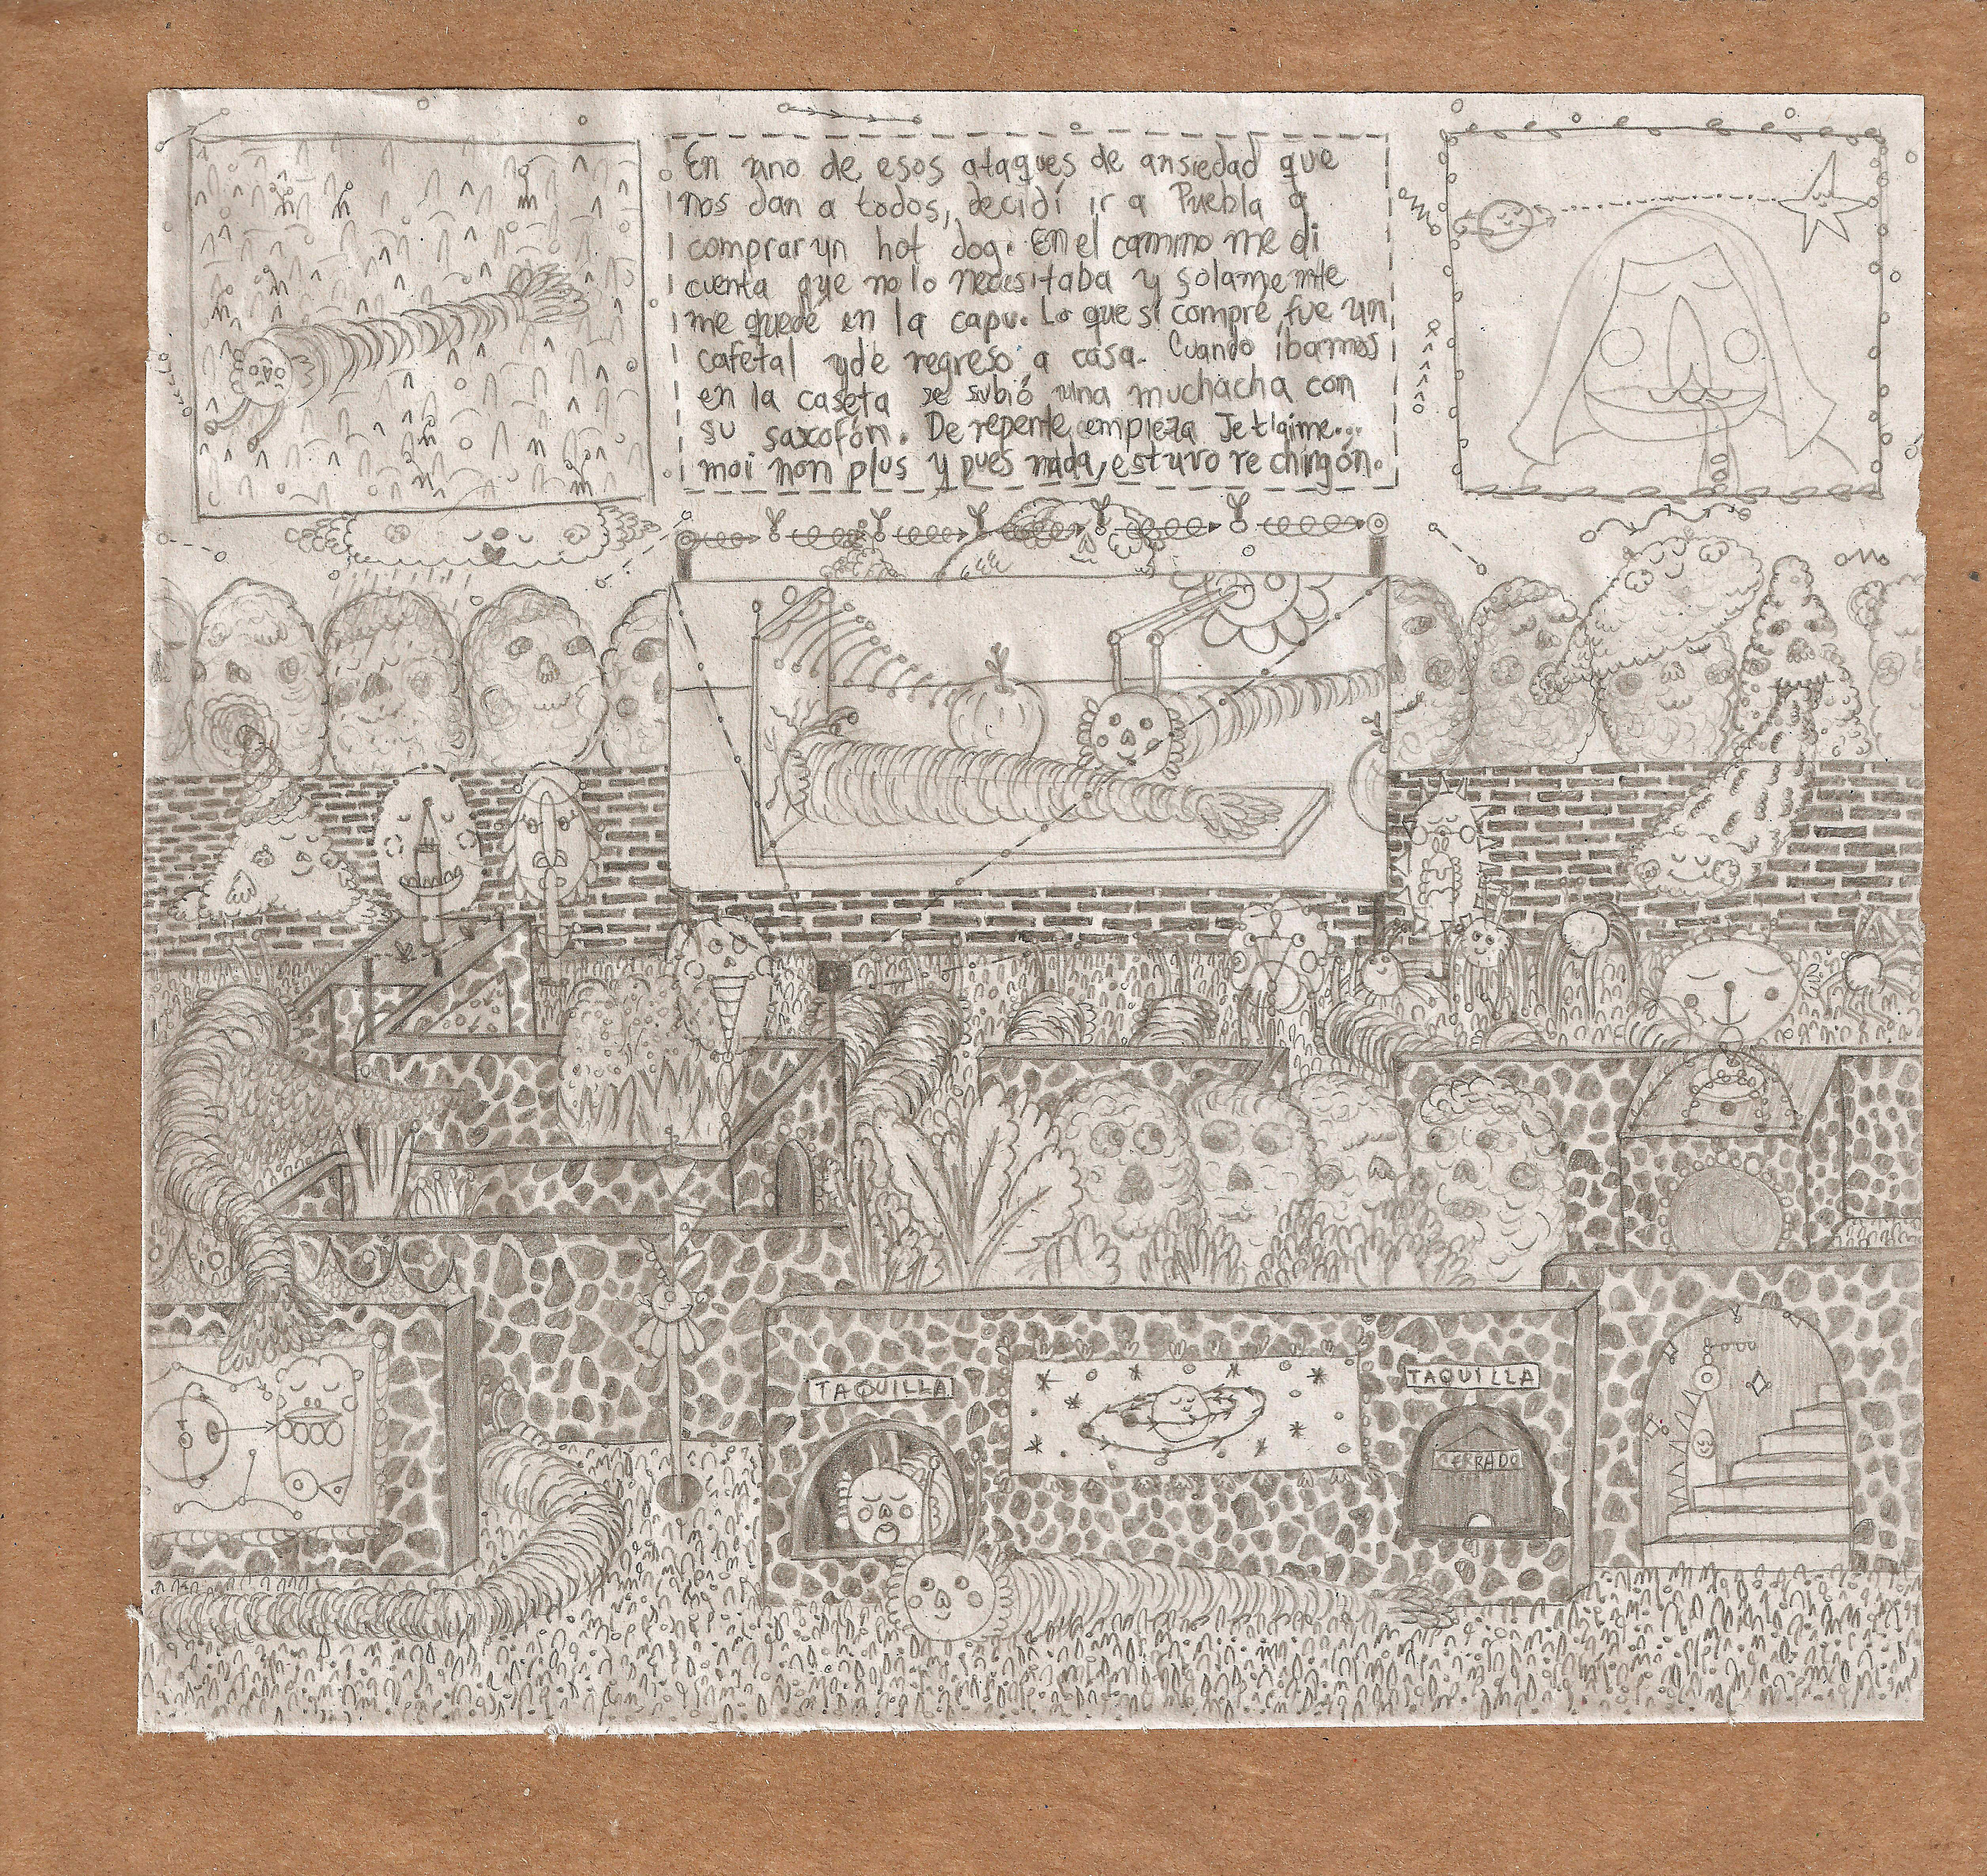 En uno de esos ataques de ansiedad que
nos dan a todos, decidí ir a Puebla a
comprar un hot dog. En el camino me di
cuenta que no lo necesitaba y solamente
me quedé en la capu. Lo que sí compré fue un
cafetal y de regreso a casa. Cuando íbamos
en la caseta se subió una muchacha con
su saxofón. De repente empieza Je t'aime...
moi non plus y pues nada, estuvo re chingón.
TAQUILLA
TAQUILLA
CERRADO